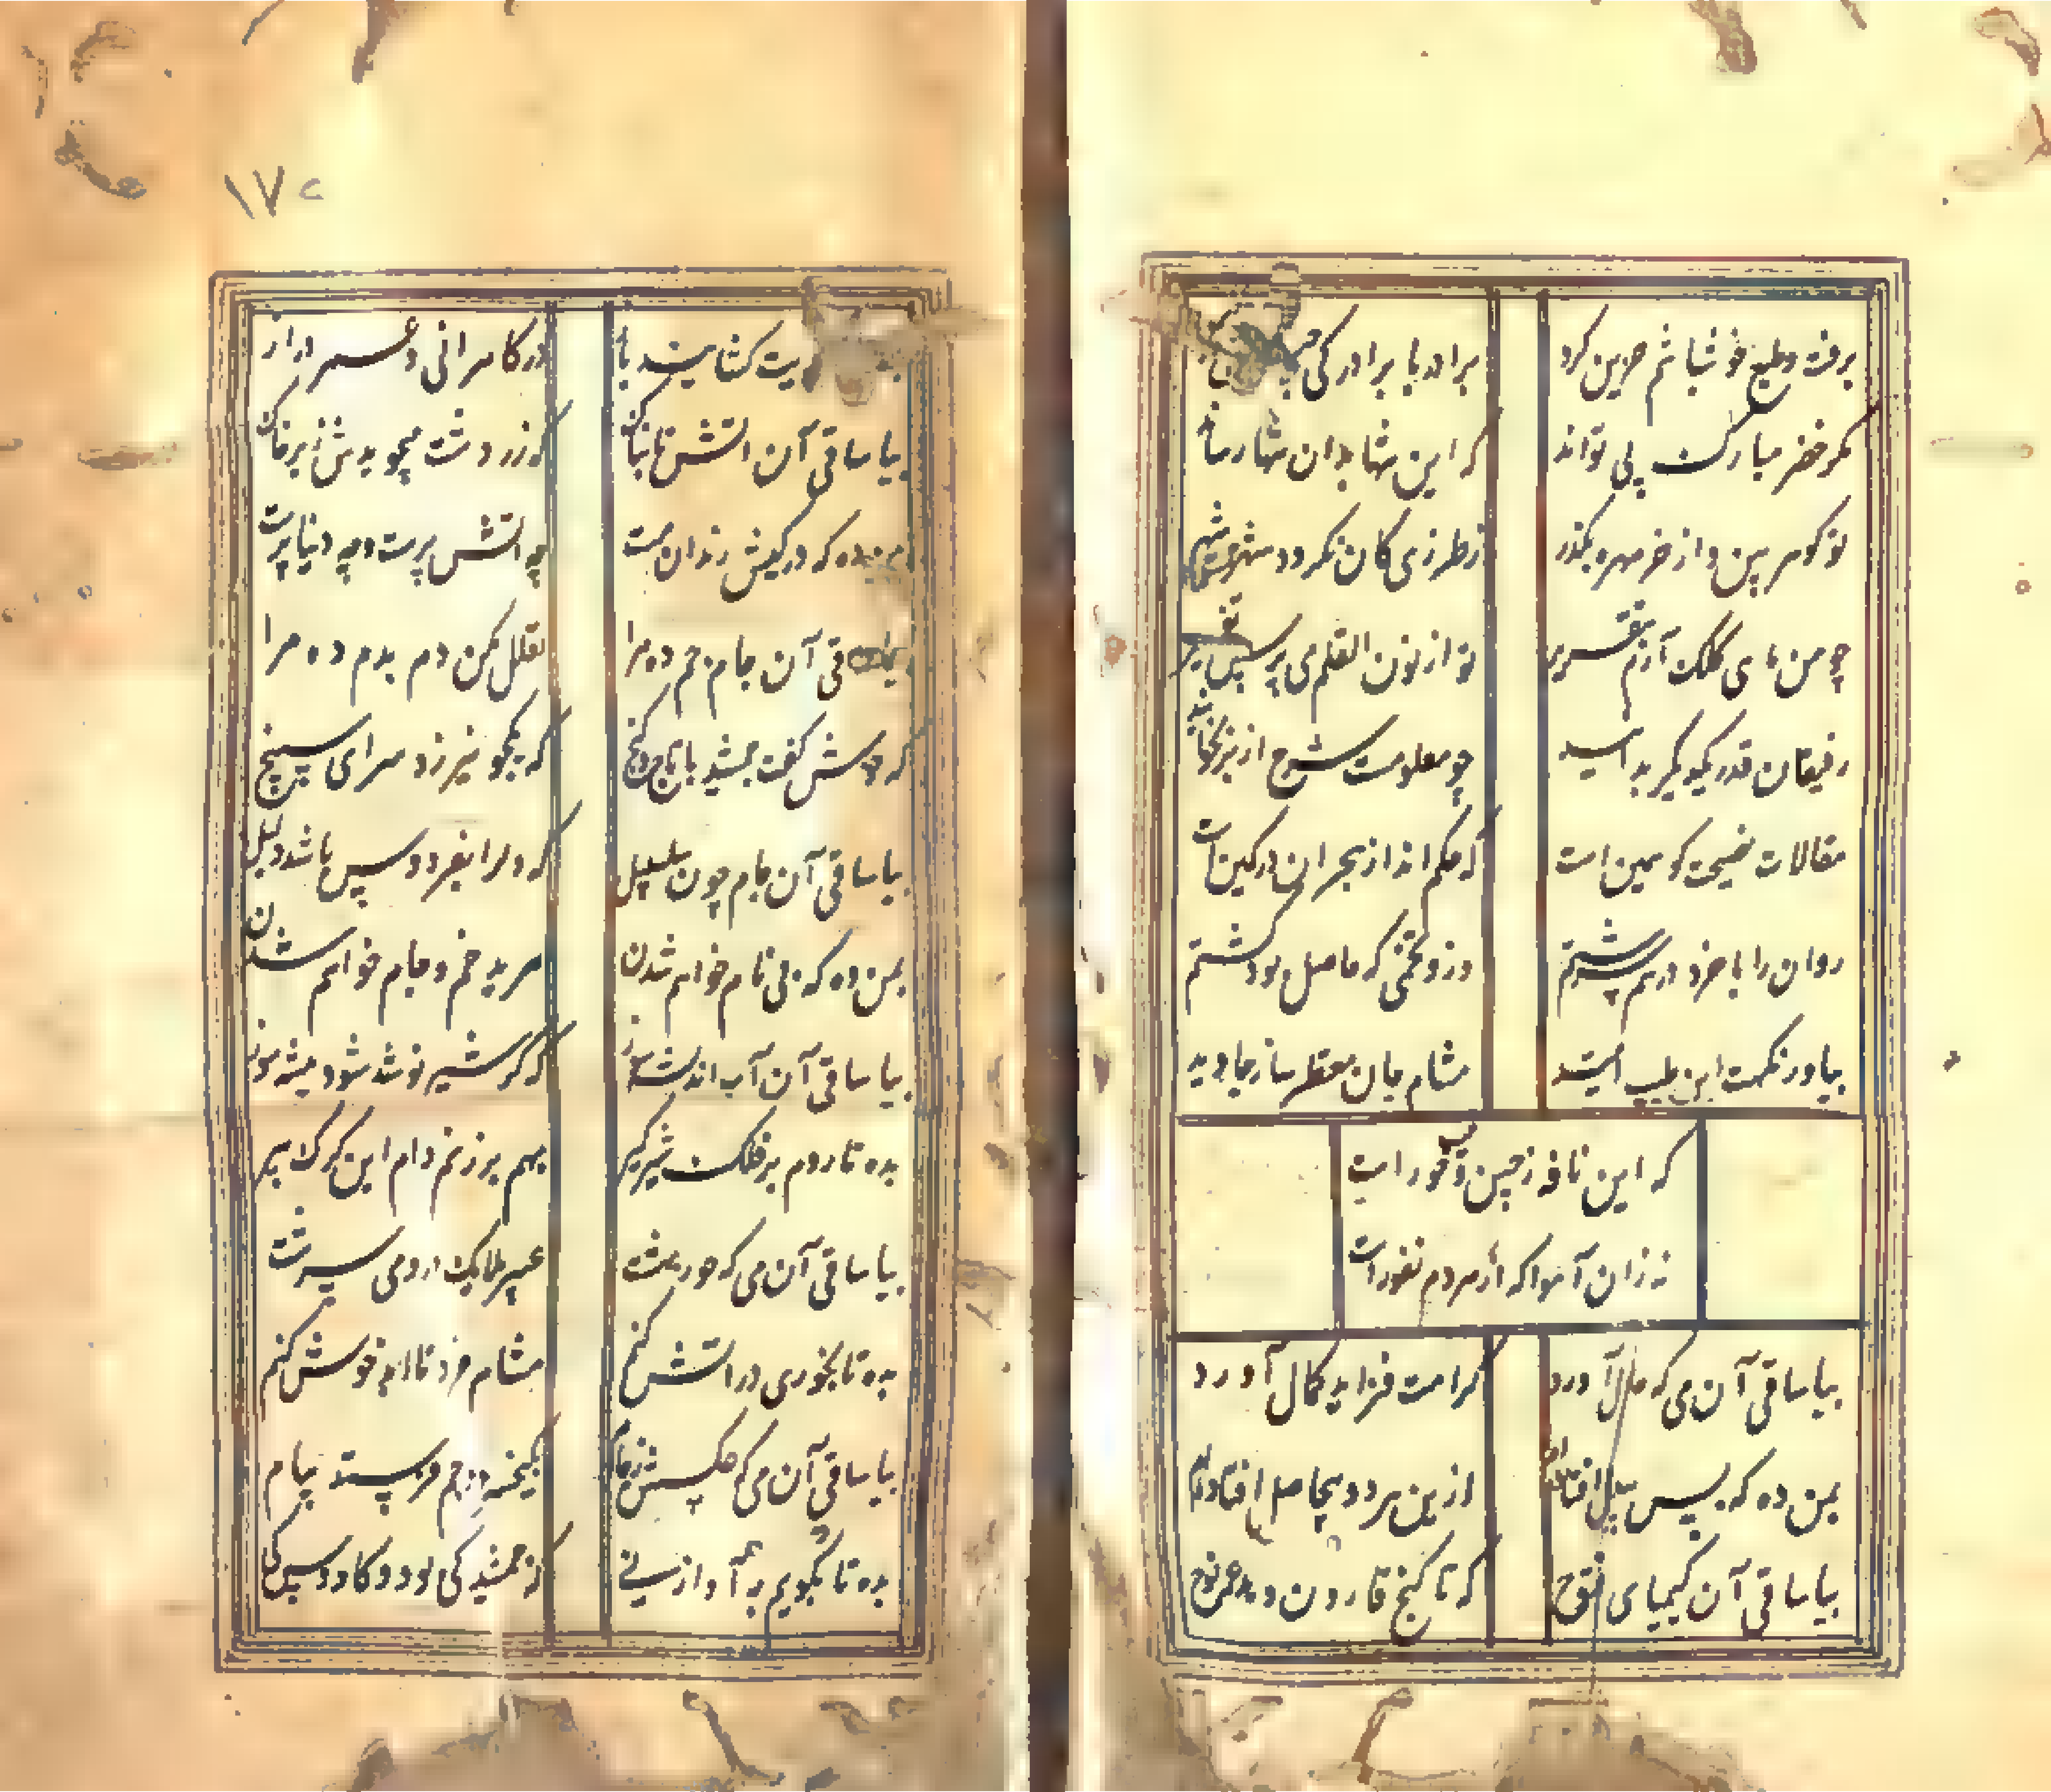 برفت و طبع خوشباشم حزین کرد
برادر با برادر کی چنین
مگر خضر مبارک پی تواند
که این تنها بدان تنها رساند
تو گوهر بین و از خر مهره بگذر
ز طرزی کان نگردد شهره بگذر
چو من ماهی کلک آرم بتقریر
تو از نون القلم می پرس تفسیر
رفیقان قدر یکدیگر بدانید
چو معلومست شرح از بر نخوانید
مقالات نصیحت گو همین است
که حکم انداز هجران در کمین است
روان را با خرد درهم سرشتم
وزو تخمی که حاصل بود کشتم
بیاور نکهت این طیب امید
مشام جان معطر ساز جاوید
که این نافه ز چین جیب حور است
نه زان آهو که از مردم نفور است
بیا ساقی آن می که حال آورد
کرامت فزاید کمال آورد
بمن ده که بس بیدل افتاده‌ام
ازین هر دو بیحاصل افتاده‌ام
بیا ساقی آن کیمیای فتوح
که تا گنج قارون دهد عمر نوح
۱۷۲
بده برویت گشایند باز
در کامرانی و عمر دراز
بیا ساقی آن اتش تابناک
که زردشت میجویدش زیر خاک
بمن ده که در کیش رندان مست
چه اتش پرست و چه دنیا پرست
بیا ساقی آن جام جم ده مرا
تعلل مکن دم بدم ده مرا
که خوش گفت جمشید با تاج و گنج
که یکجو نیرزد سرای سپنج
بیا ساقی آن جام چون سلسبیل
که دل را بفردوس باشد دلیل
بمن ده که بی نام خواهم شدن
مرید خم و جام خواهم شدن
بیا ساقی آن آب اندیشه سوز
که گر شیر نوشد شود بیشه سوز
بده تا روم بر فلک شیر گیر
بهم بر زنم دام این گرگ پیر
بیا ساقی آن می که حور بهشت
عبیر ملایک درو می سرشت
بده تا بخوری در اتش کنم
مشام خرد تا ابد خوش کنم
بیا ساقی آن می که عکسش ز جام
بکیخسرو و جم فرستد پیام
بده تا بگویم به آواز نی
که جمشید کی بود و کاوس کی